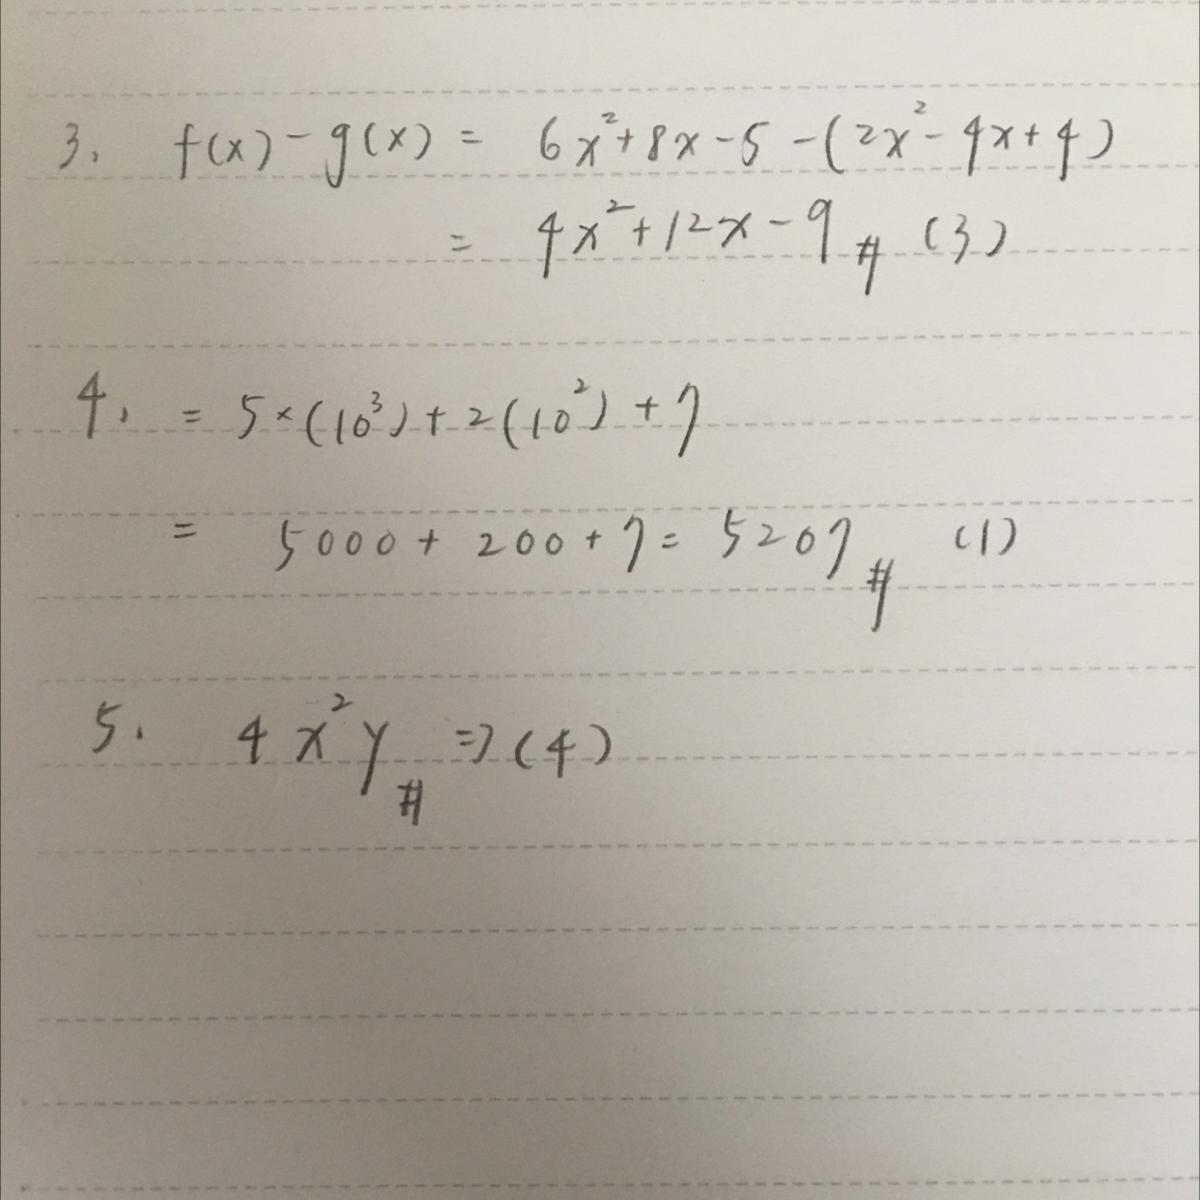 3. f(x) - g(x) = 6x²+8x-5-(2x²-4x+4)
= 4x²+12x-9 # (3)
4. = 5×(10³)+2(10²)+7
= 5000+200+7=5207 # (1)
5. 4x²y # ⇒(4)